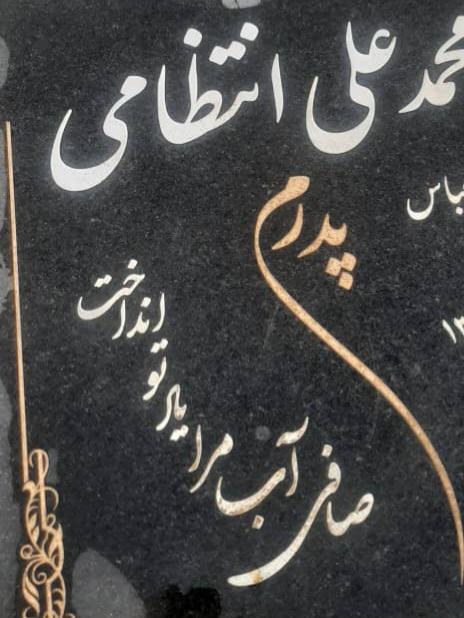 محمد علی انتظامی
پدرم
صافی آب مرا یاد تو انداخت